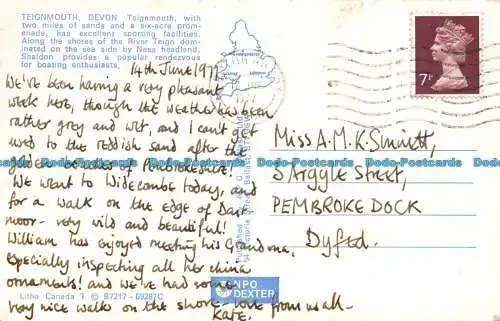 TEIGNMOUTH, DEVON Teignmouth, with
two miles of sands and a six-acre promenade,
has excellent sporting facilities.
Along the shores of the River Teign dominated
on the sea side by Ness headland,
Shaldon provides a popular rendezvous
for boating enthusiasts.
14th June 197
We've been having a very pleasant
week here, though the weather has been
rather grey and wet, and I can't get
used to the reddish sand after the
golden beaches of Pembrokeshire!
We went to Widecombe today, and
for a walk on the edge of Dart
moor - very wild and beautiful!
William has enjoyed meeting his Grandma,
especially inspecting all her china
ornaments! and we've had some
very nice walks on the shore - love from us all -
Kate.
Litho Canada 1 © B7217 - 69267C
Published
St Victoria
NPO
DEXTER
7P
Miss A.M.K. Sinnett,
5 Argyle Street,
PEMBROKE DOCK
Dyfed.
Dodo-Postcards
Dodo-Postcards
Dodo-Postcards
Dodo-Postcards
Dodo-Postcards